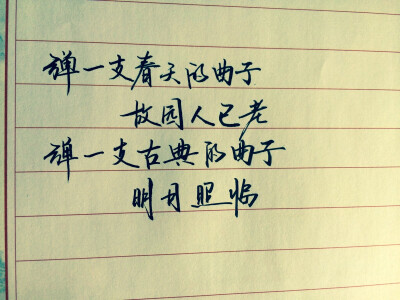 弹一支春天的曲子
故园人已老
弹一支古典的曲子
明月照临